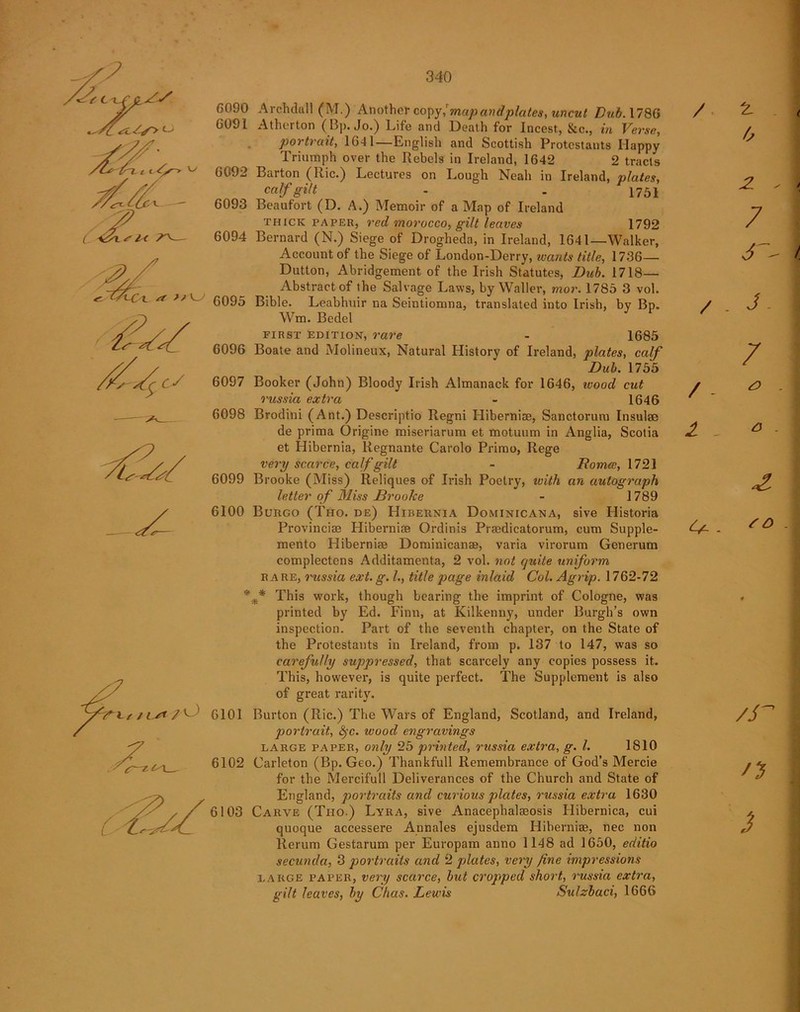 340
6090 Archdall (M.) Another copy, map and plates, uncut Dub. 1786
6091 Atherton (Bp. Jo.) Life and Death for Incest, &c., in Verse,
portrait, 1641—English and Scottish Protestants Happy
Triumph over the Rebels in Ireland, 1642 2 tracts
6092 Barton (Ric.) Lectures on Lough Neah in Ireland, plates,
calf gilt - - 1751
6093 Beaufort (D. A.) Memoir of a Map of Ireland
THICK PAPER, red morocco, gilt leaves 1792
6094 Bernard (N.) Siege of Drogheda, in Ireland, 1641—Walker,
Account of the Siege of London-Derry, wants title, 1736—
Dutton, Abridgement of the Irish Statutes, Dub. 1718—
Abstract of the Salvage Laws, by Waller, mor. 1785 3 vol.
6095 Bible. Leabhuir na Seintiomna, translated into Irish, by Bp.
Wm. Bedel
FIRST EDITION, rare - 1685
6096 Boate and Molineux, Natural History of Ireland, plates, calf
Dub. 1755
6097 Booker (John) Bloody Irish Almanack for 1646, wood cut
russia extra - 1646
6098 Brodini (Ant.) Descriptio Regni Hiberniæ, Sanctorum Insulæ
de prima Origine miseriarum et motuum in Anglia, Scotia
et Hibernia, Regnante Carolo Primo, Rege
very scarce, calf gilt - Romæ, 1721
6099 Brooke (Miss) Reliques of Irish Poetry, with an autograph
letter of Miss Brooke - 1789
6100 BURGO (THO. DE) HIBERNIA DOMINICANA, sive Historia
Provinciæ Hiberniæ Ordinis Prædicatorum, cum Supple-
mento Hiberniæ Dominicanæ, varia virorum Generum
complectens Additamenta, 2 vol. not quite uniform
RARE, russia ext. g. l., title page inlaid Col. Agrip. 1762-72
*⁎* This work, though bearing the imprint of Cologne, was
printed by Ed. Finn, at Kilkenny, under Burgh's own
inspection. Part of the seventh chapter, on the State of
the Protestants in Ireland, from p. 137 to 147, was so
carefully suppressed, that scarcely any copies possess it.
This, however, is quite perfect. The Supplement is also
of great rarity.
6101 Burton (Ric.) The Wars of England, Scotland, and Ireland,
portrait, &c. wood engravings
LARGE PAPER, only 25 printed, russia extra, g. l. 1810
6102 Carleton (Bp. Geo.) Thankfull Remembrance of God's Mercie
for the Mercifull Deliverances of the Church and State of
England, portraits and curious plates, russia extra 1630
6103 CARVE (THO.) LYRA, sive Anacephalæosis Hibernica, cui
quoque accessere Annales ejusdem Hiberniæ, nec non
Rerum Gestarum per Europam anno 1148 ad 1650, editio
secunda, 3 portraits and 2 plates, very fine impressions
LARGE PAPER, very scarce, but cropped short, russia extra,
gilt leaves, by Chas. Lewis Sulzbaci, 1666